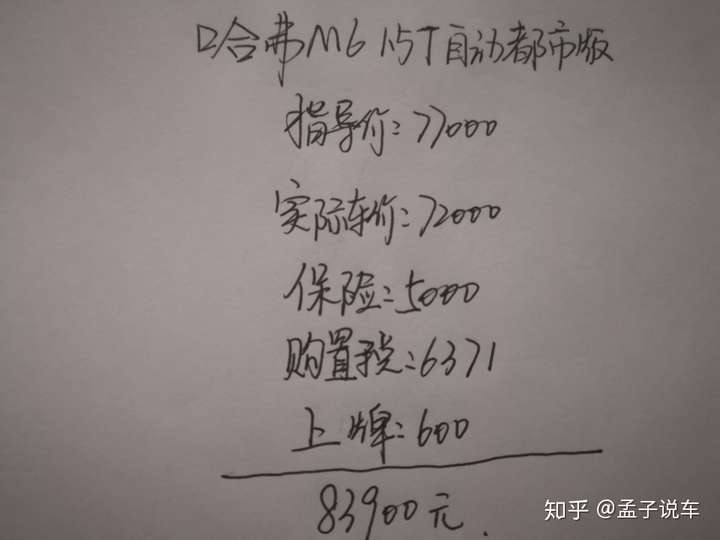 哈弗M6 1.5T自动都市版
指导价:77000
实际车价:72000
保险:5000
购置税:6371
上牌:600
83900元.
知乎 @孟子说车